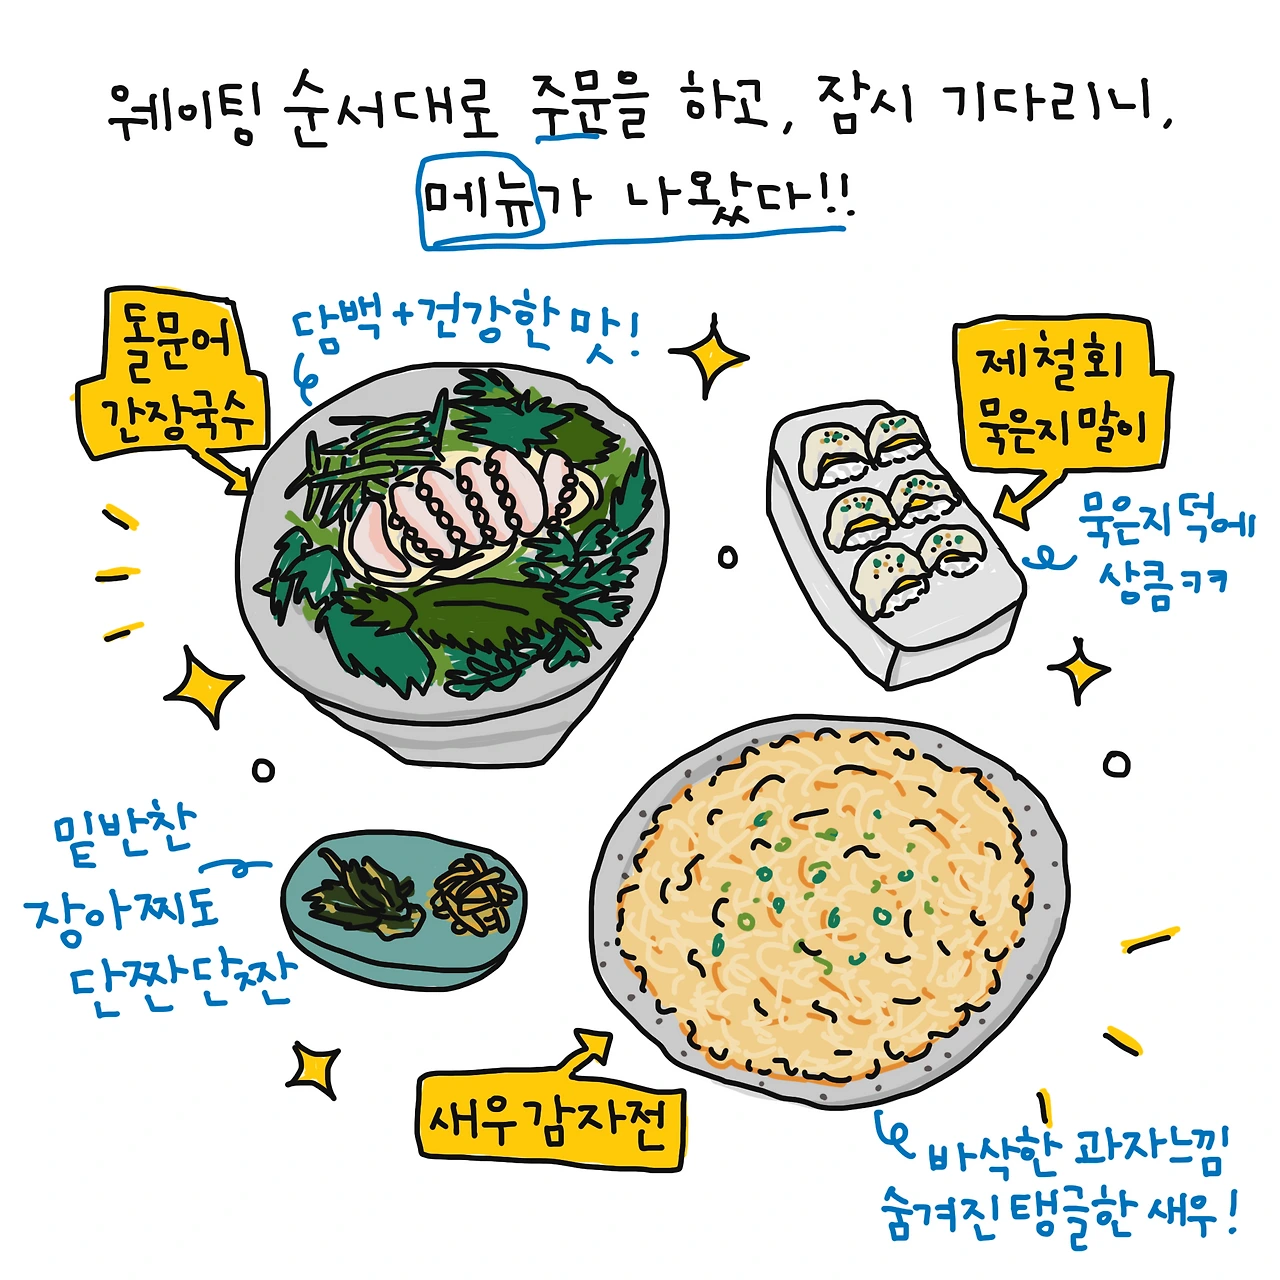 웨이팅 순서대로 주문을 하고, 잠시 기다리니,
메뉴가 나왔다!!
돌문어
간장국수
담백+건강한 맛!
제철회
묵은지 말이
묵은지 덕에
상큼ㅋㅋ
밑반찬
장아찌도
단짠단짠
새우감자전
바삭한 과자느낌
숨겨진 탱글한 새우!